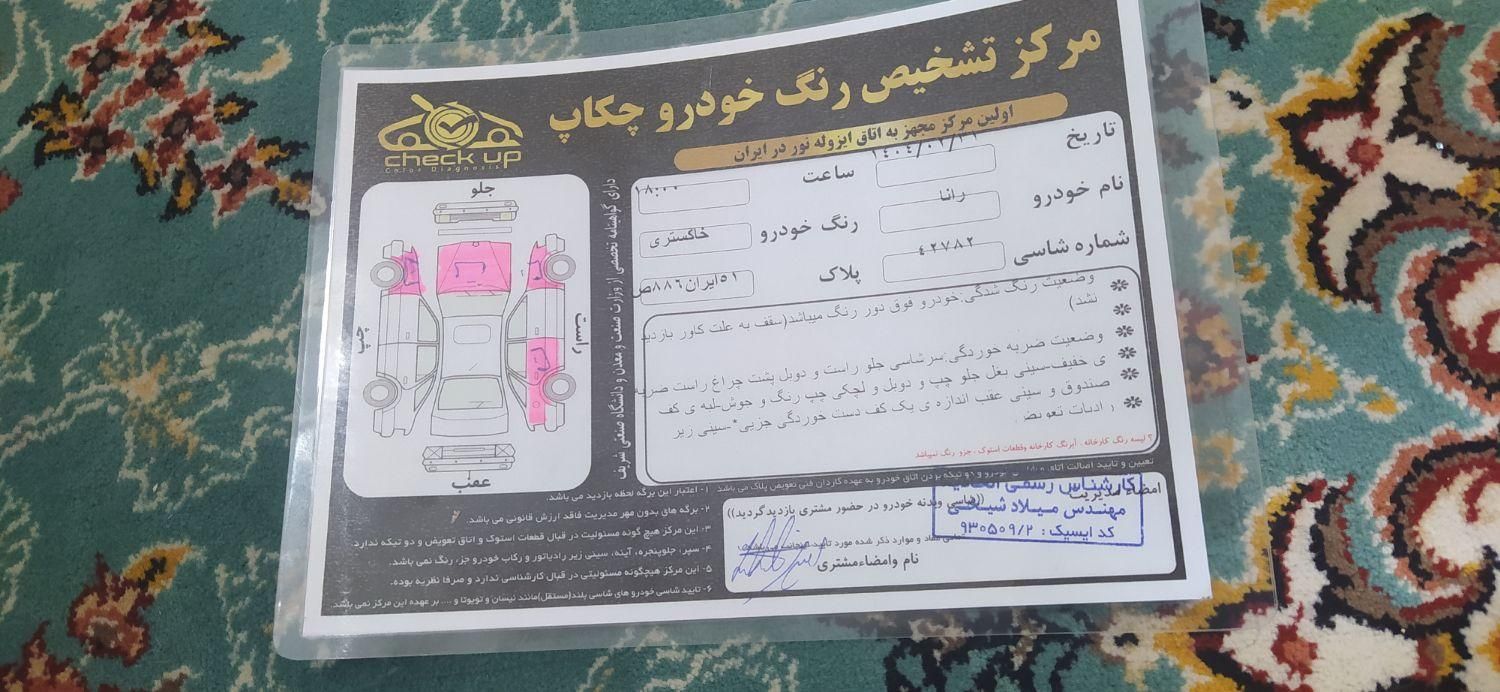 مرکز تشخیص رنگ خودرو چکاپ
اولین مرکز مجهز به اتاق ایزوله نور در ایران
check up
Color Diagnosis
تاریخ
ساعت ۱۸:۰۰
نام خودرو رانا
رنگ خودرو خاکستری
شماره شاسی ۴۲۷۸۲
پلاک ۵۱ایران۸۸۶ص
جلو
راست
چپ
عقب
دارای گواهینامه تخصصی از وزارت صنعت و معدن و دانشگاه صنعتی شریف
وضعیت رنگ شدگی:خودرو فوق دور رنگ میباشد(سقف به علت کاور بازدید
نشد)
وضعیت ضربه خوردگی:سرشاسی جلو راست و دوبل پشت چراغ راست ضربه
ی خفیف-سینی بغل جلو چپ و دوبل و لچکی چپ رنگ و جوش-لبه ی کف
صندوق و سینی عقب اندازه ی یک کف دست خوردگی جزیی*-سینی زیر
تعویض
لیسه رنگ کارخانه ، آبرنگ کارخانه وقطعات استوک ، جزو رنگ نمیباشد
تعیین و تایید اصالت اتاق و
خودرو و دو تیکه بردن اتاق خودرو به عهده کاردان فنی تعویض پلاک می باشد
۱- اعتبار این برگه لحظه بازدید می باشد.
۲- برگه های بدون مهر مدیریت فاقد ارزش قانونی می باشد.
۳- این مرکز هیچ گونه مسئولیت در قبال قطعات استوک و اتاق تعویض و دو تیکه ندارد.
۴- سپر، جلوپنجره، آینه، سینی زیر رادیاتور و رکاب خودرو جزء رنگ نمی باشد.
۵- این مرکز هیچگونه مسئولیتی در قبال کارشناسی ندارد و صرفا نظریه بوده.
۶- تایید شاسی خودرو های شاسی بلند(مستقل)مانند نیسان و تویوتا و .... بر عهده این مرکز نمی باشد.
امضاء مدیریت
وبدنه خودرو در حضور مشتری بازدیدگردید))
و موارد ذکر شده مورد تایید
نام وامضاءمشتری
کارشناس رسمی
مهندس میلاد شیخی
کد ایسیک : ۹۳۰۵۰۹/۲